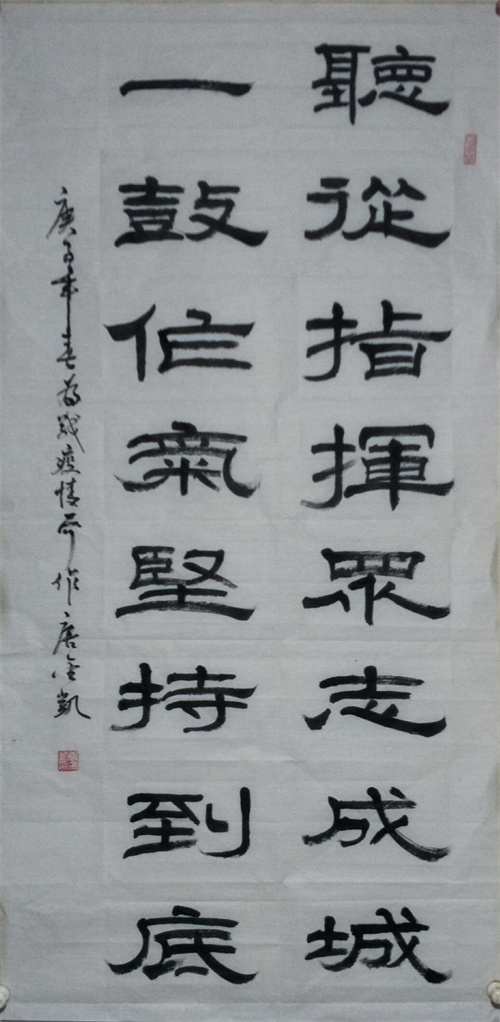 聽從指揮眾志成城
一鼓作氣堅持到底
庚子年春为战疫情而作唐金凱